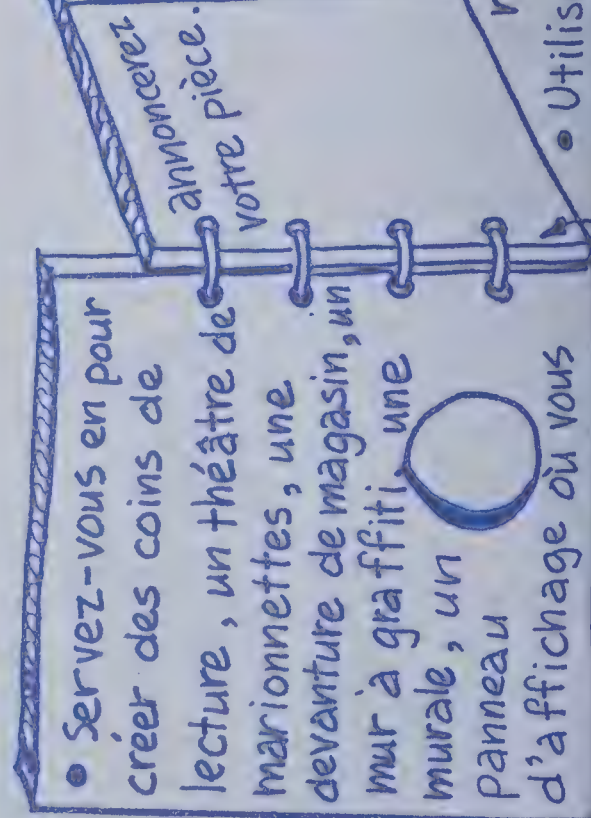 • Servez-vous en pour
créer des coins de
lecture, un théâtre de
marionnettes, une
devanture de magasin, un
mur à graffiti, une
murale, un
panneau
d'affichage où vous
annoncerez
votre pièce.
• Utilis